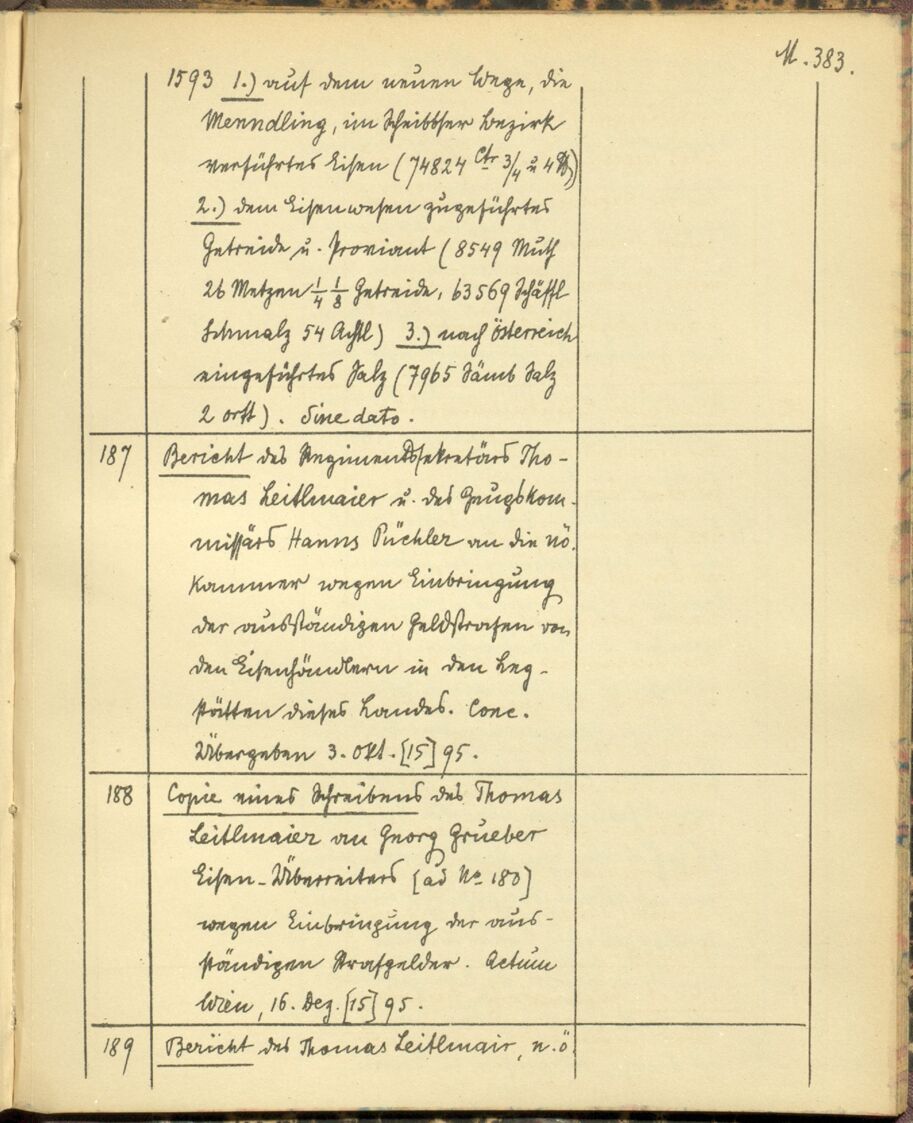 M. 383.
1593 1.) auf dem neuen Wege, die
Menndling, im Scheibbser Bezirk
verführtes Eisen (74824 Ctr 3/4 u 4 ℔)
2.) dem Eisenwesen zugeführtes
Getreide u. Proviant (8549 Muth
26 Metzen 1/4 1/8 Getreide, 63569 Schäffl
Schmalz 54 Achtl) 3.) nach Österreich
eingeführtes Salz (7965 Sämb Salz
2 ort). Sine dato.
187 Bericht des Regimentssekretärs Tho-
mas Leitlmaier u. des Zeugskom-
missärs Hanns Püchler an die nö.
Kammer wegen Einbringung
der ausständigen Geldstrafen von
den Eisenhändlern in den Leg-
stätten dieses Landes. Conc.
Übergeben 3. Okt. [15]95.
188 Copie eines Schreibens des Thomas
Leitlmaier an Georg Grueber
Eisen-Überreiters [ad No 180]
wegen Einbringung der aus-
ständigen Strafgelder. Actum
Wien, 16. Dez. [15]95.
189 Bericht des Thomas Leitlmair, n.ö.